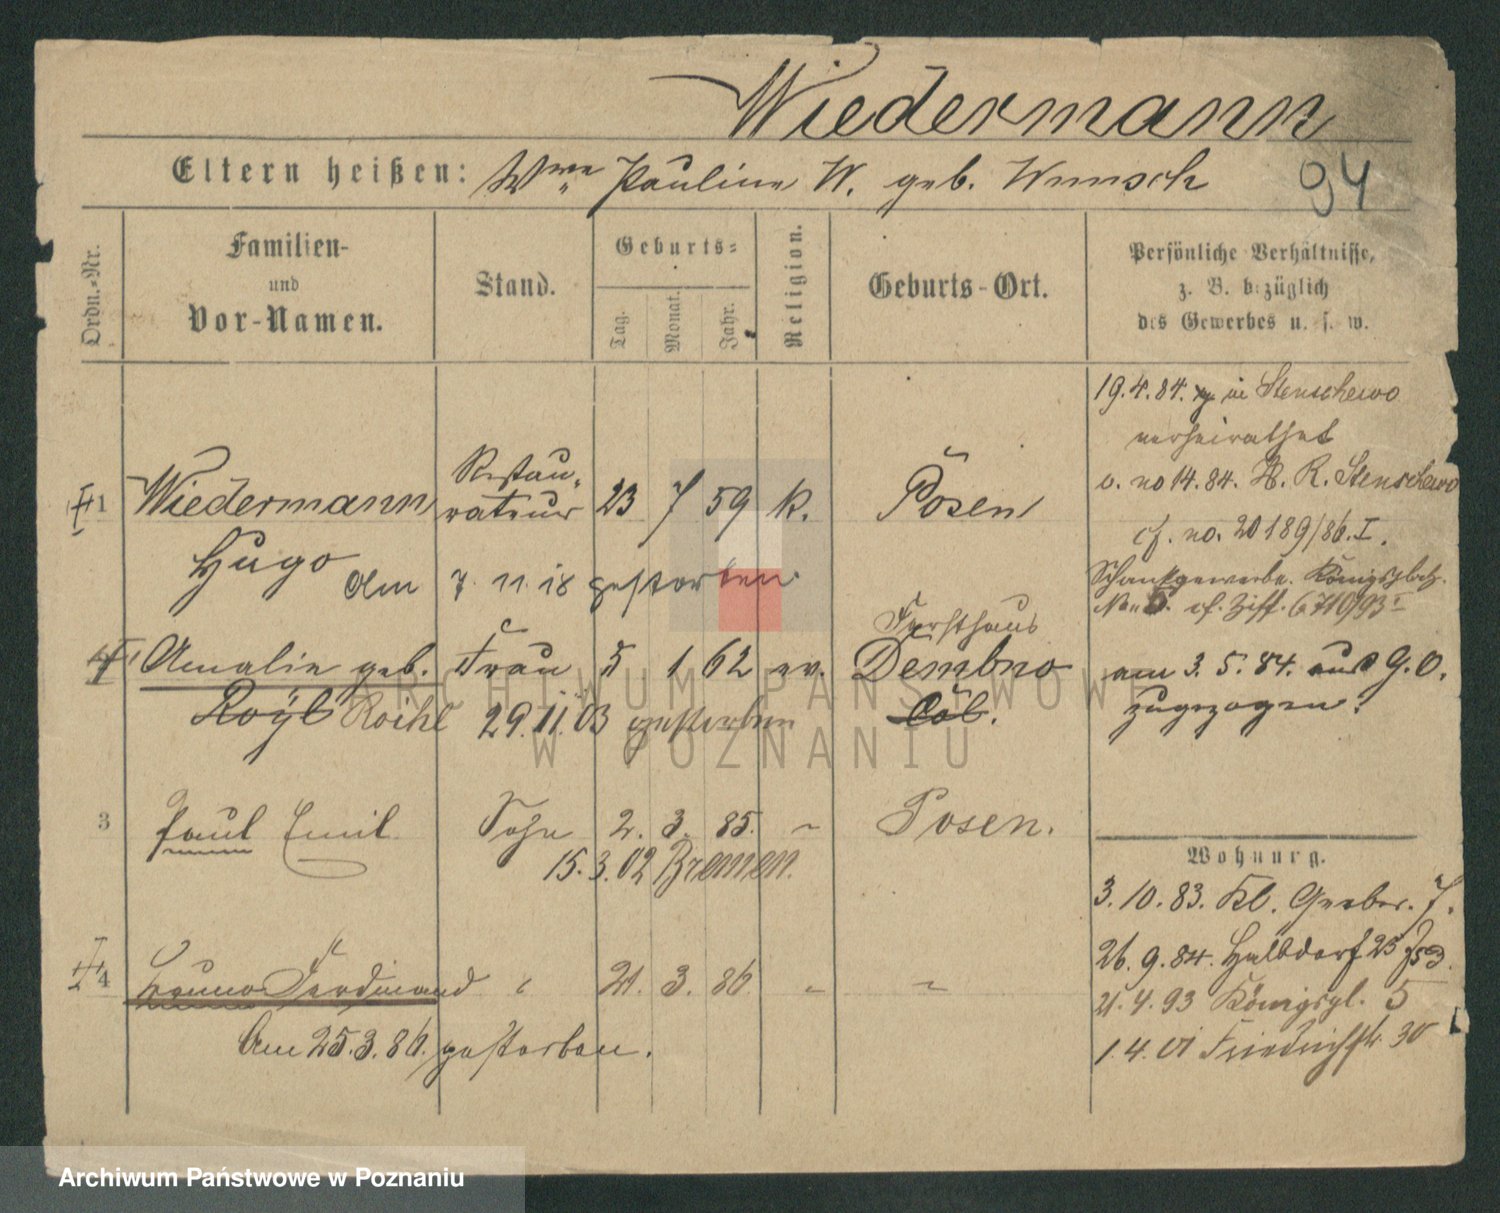 Wiedermann
Eltern heißen: Wwe Pauline W. geb. Wunsch
94
Ordn.-Nr.
Familien-
und
Vor-Namen.
Stand.
Geburts-
Tag.
Monat.
Jahr.
Religion.
Geburts-Ort.
Persönliche Verhältnisse,
z. B. bezüglich
des Gewerbes u. s. w.
19.4.84. in Stenschewo
verheirathet
o. no 14.84. A. R. Stenschewo
cf. no. 20189/86.I.
Schankgewerbe. Königsplatz
No 5. cf. Ziff. 6710/93 I
1 Wiedermann Restau-
rateur 23 7 59 k. Posen
Hugo
Am 7. 11. 18 gestorben.
Amalie geb. Frau 5 1 62 ev. Forsthaus
Dembno
Roihl 29.11.03 gestorben
am 3. 5. 84. aus G. O.
zugezogen.
3 Paul Emil Sohn 2. 3. 85. Posen.
15.3.02 Bremen.
4 Bruno Ferdinand 21. 3. 86
Am 25.3.86. gestorben.
Wohnung.
3.10.83. Kl. Gerber. 7.
26.9.84. Halbdorf 23
21.4.93 Königspl. 5
1.4.01 Friedrichstr. 30
ARCHIWUM PAŃSTWOWE
W POZNANIU
Archiwum Państwowe w Poznaniu